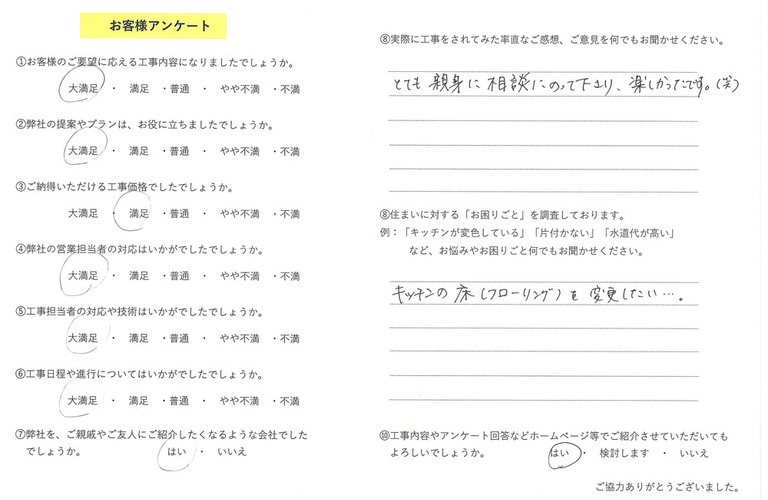 お客様アンケート
①お客様のご要望に応える工事内容になりましたでしょうか。
大満足 ・ 満足 ・普通 ・ やや不満 ・不満
②弊社の提案やプランは、お役に立ちましたでしょうか。
大満足 ・ 満足 ・普通 ・ やや不満 ・不満
③ご納得いただける工事価格でしたでしょうか。
大満足 ・ 満足 ・普通 ・ やや不満 ・不満
④弊社の営業担当者の対応はいかがでしたでしょうか。
大満足 ・ 満足 ・普通 ・ やや不満 ・不満
⑤工事担当者の対応や技術はいかがでしたでしょうか。
大満足 ・ 満足 ・普通 ・ やや不満 ・不満
⑥工事日程や進行についてはいかがでしたでしょうか。
大満足 ・ 満足 ・普通 ・ やや不満 ・不満
⑦弊社を、ご親戚やご友人にご紹介したくなるような会社でした
でしょうか。 はい ・ いいえ
⑧実際に工事をされてみた率直なご感想、ご意見を何でもお聞かせください。
とても 親身に 相談にのって下さり、楽しかったです。(笑)
⑧住まいに対する「お困りごと」を調査しております。
例：「キッチンが変色している」「片付かない」「水道代が高い」
など、お悩みやお困りごと何でもお聞かせください。
キッチンの 床(フローリング)を 変更したい…。
⑩工事内容やアンケート回答などホームページ等でご紹介させていただいても
よろしいでしょうか。 はい ・ 検討します ・ いいえ
ご協力ありがとうございました。